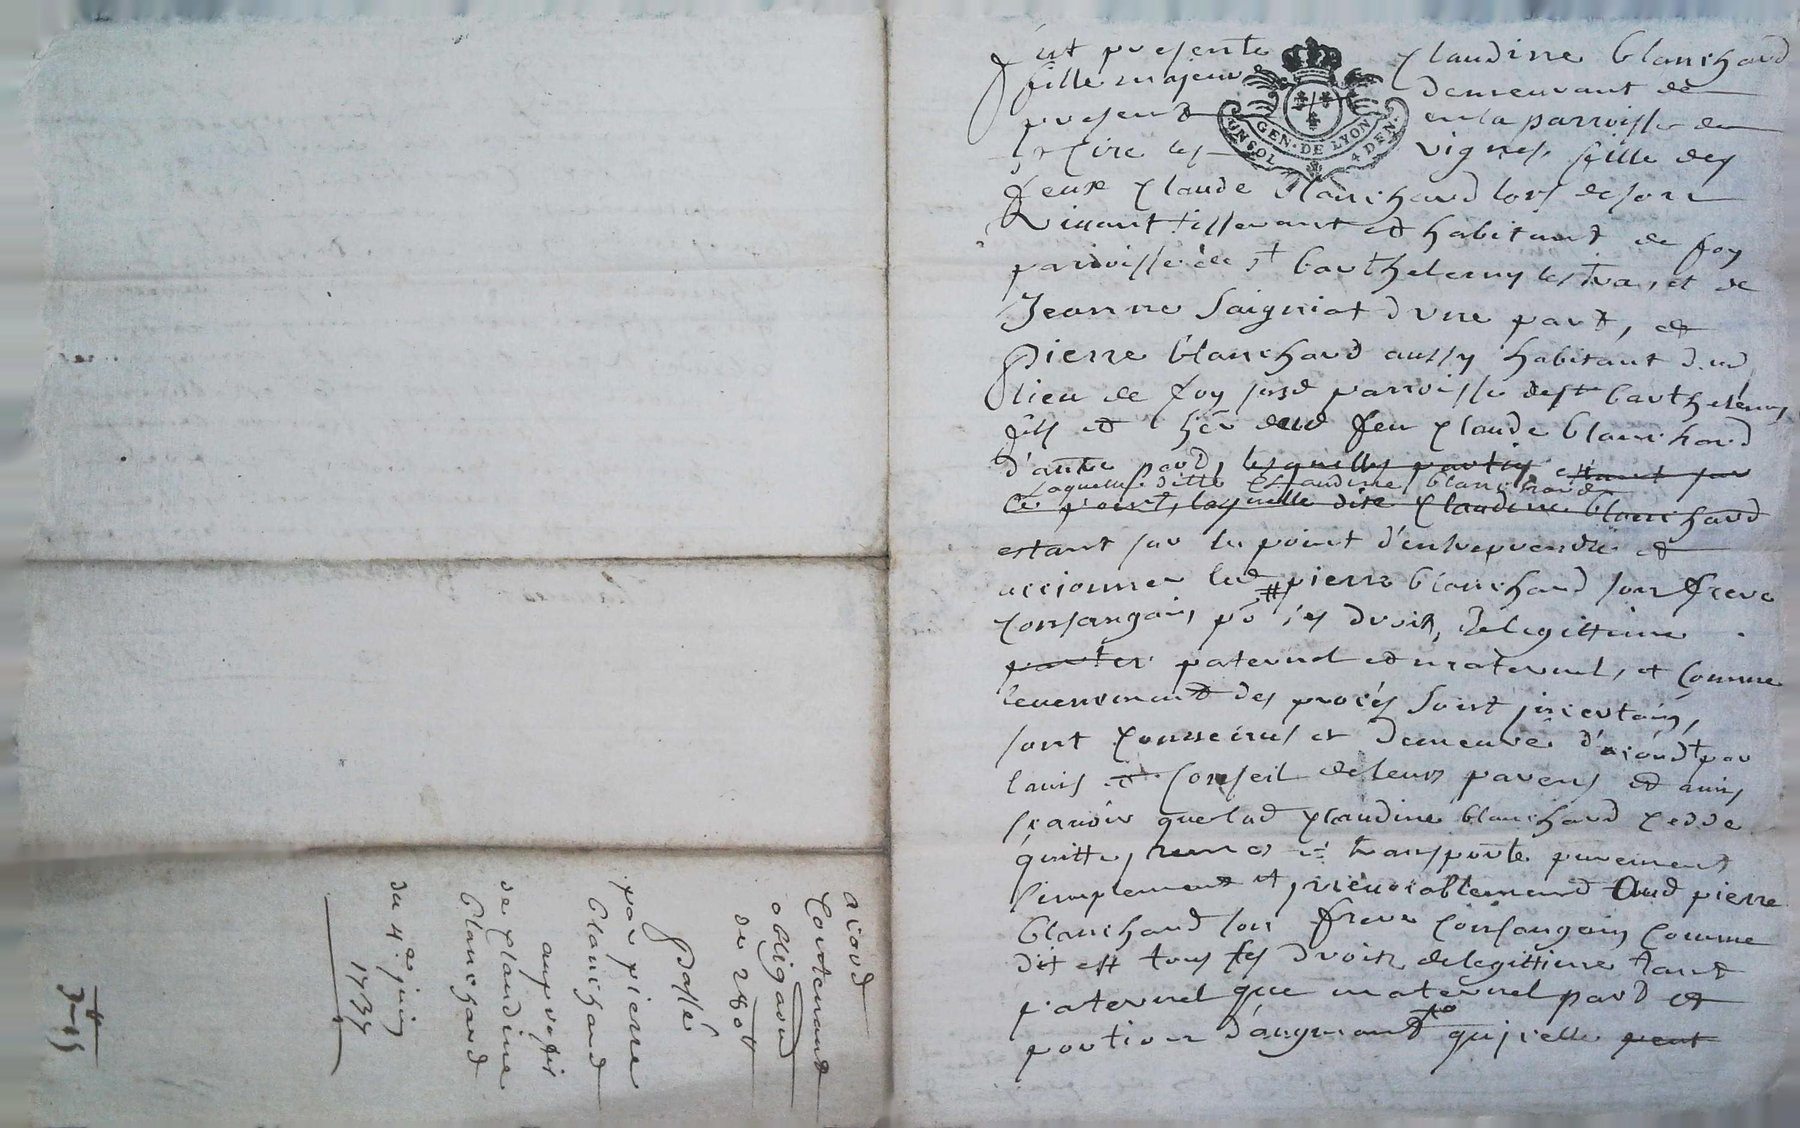 fut presente Claudine blanchard
fille majeure demeurant de
present en la parroisse de
St Cire les vignes, fille des
feux Claude blanchard lors de son
vivant tisserant et habitant de foy
parroisse de st barthelemy lestra, et de
Jeanne Saigniat d'une part, et
Pierre blanchard aussy habitant dud
lieu de foy susd parroisse de st barthelemy
fils et her dud feu Claude blanchard
d'autre part, lesquelles parties estant sur
Laquelle ditte Claudine blanchard
ce point, laquelle dite Claudine blanchard
estant sur le point d'entreprendre et
accionner led pierre blanchard son frere
Consanguin, po ses droits de legittime
paternel et maternel, et Comme
levenement des procès sont incertains,
sont convenus et demeuré d'acord par
lavis et Conseil de leurs parens et amis
scavoir que lad Claudine blanchard cedde
quitte, remet et transporte purement
simplement et irrevocablement Aud pierre
blanchard son frere Consanguin Comme
dit est tous ses droits de legittime tant
paternel que maternel part et
portion d'augmant qu'icelle peut
acord
Contenant
obligaon
de 280 tt
Passé
par pierre
blanchard
au profit
de Claudine
blanchard
du 4e juin
1737
GEN. DE LYON
UN SOL 4 DEN.